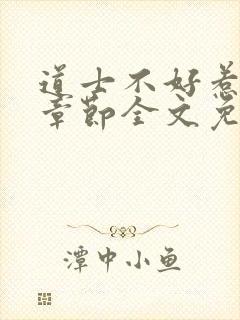 道士不好惹
章节全文免
潭中小鱼